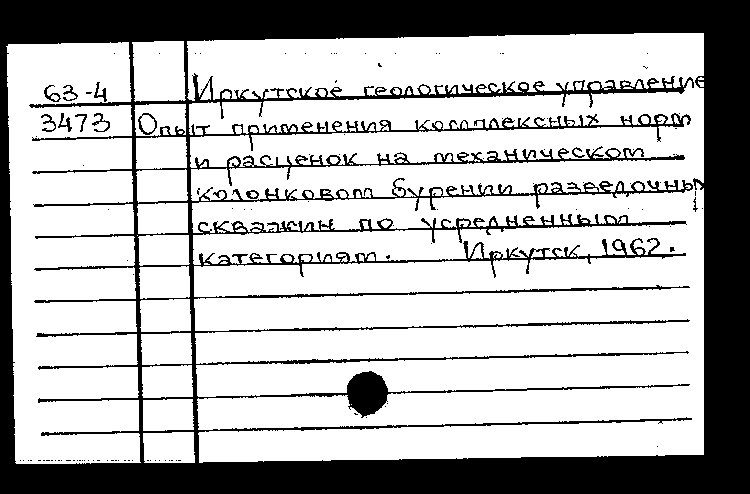 63-4 Иркутское геологическое управление
3473 Опыт применения комплексных норм
и расценок на механическом
колонковом бурении разведочных
скважин по усредненным
категориям. Иркутск, 1962.